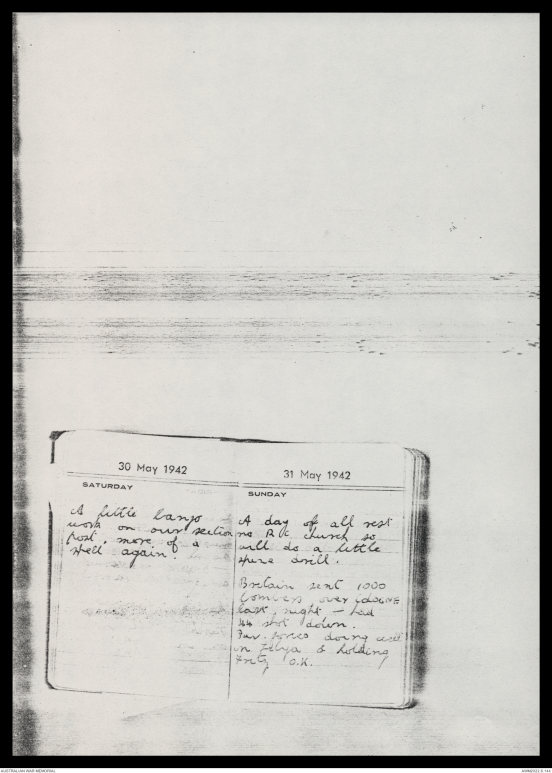 30 May 1942
SATURDAY
A little banjo
work on our section
post, more of a
spell again.
31 May 1942
SUNDAY
A day of all rest
no R.C. church so
will do a little
spine drill.
Britain sent 1000
bombers over COLOGNE
last night – had
44 shot down.
Our forces doing well
in Libya & holding
Fritz O.K.
AUSTRALIAN WAR MEMORIAL